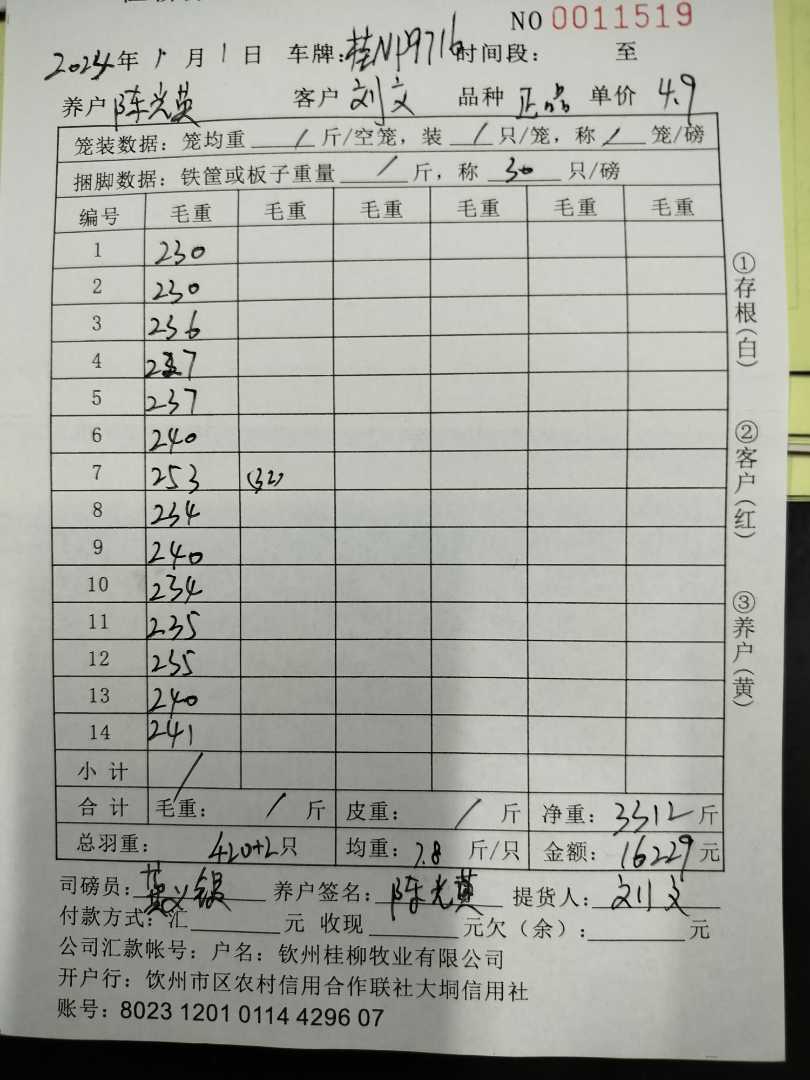 NO 0011519
2024年 月 1 日 车牌: 时间段: 至
养户 陈光英 客户 刘文 品种 正品 单价 4.9
笼装数据: 笼均重 / 斤/空笼, 装 / 只/笼, 称 / 笼/磅
捆脚数据: 铁筐或板子重量 / 斤, 称 30 只/磅
编号 毛重 毛重 毛重 毛重 毛重 毛重
1 230
2 230
3 236
4 227
5 237
6 240
7 253 (32)
8 234
9 240
10 234
11 235
12 235
13 240
14 241
小计 /
合计 毛重: / 斤 皮重: / 斤 净重: 3312 斤
总羽重: 420+2只 均重: 7.8 斤/只 金额: 16229 元
司磅员: 养户签名: 陈光英 提货人: 刘文
付款方式: 汇 元 收现 元欠(余): 元
公司汇款帐号: 户名: 钦州桂柳牧业有限公司
开户行: 钦州市区农村信用合作联社大垌信用社
账号: 8023 1201 0114 4296 07
①存根(白)
②客户(红)
③养户(黄)